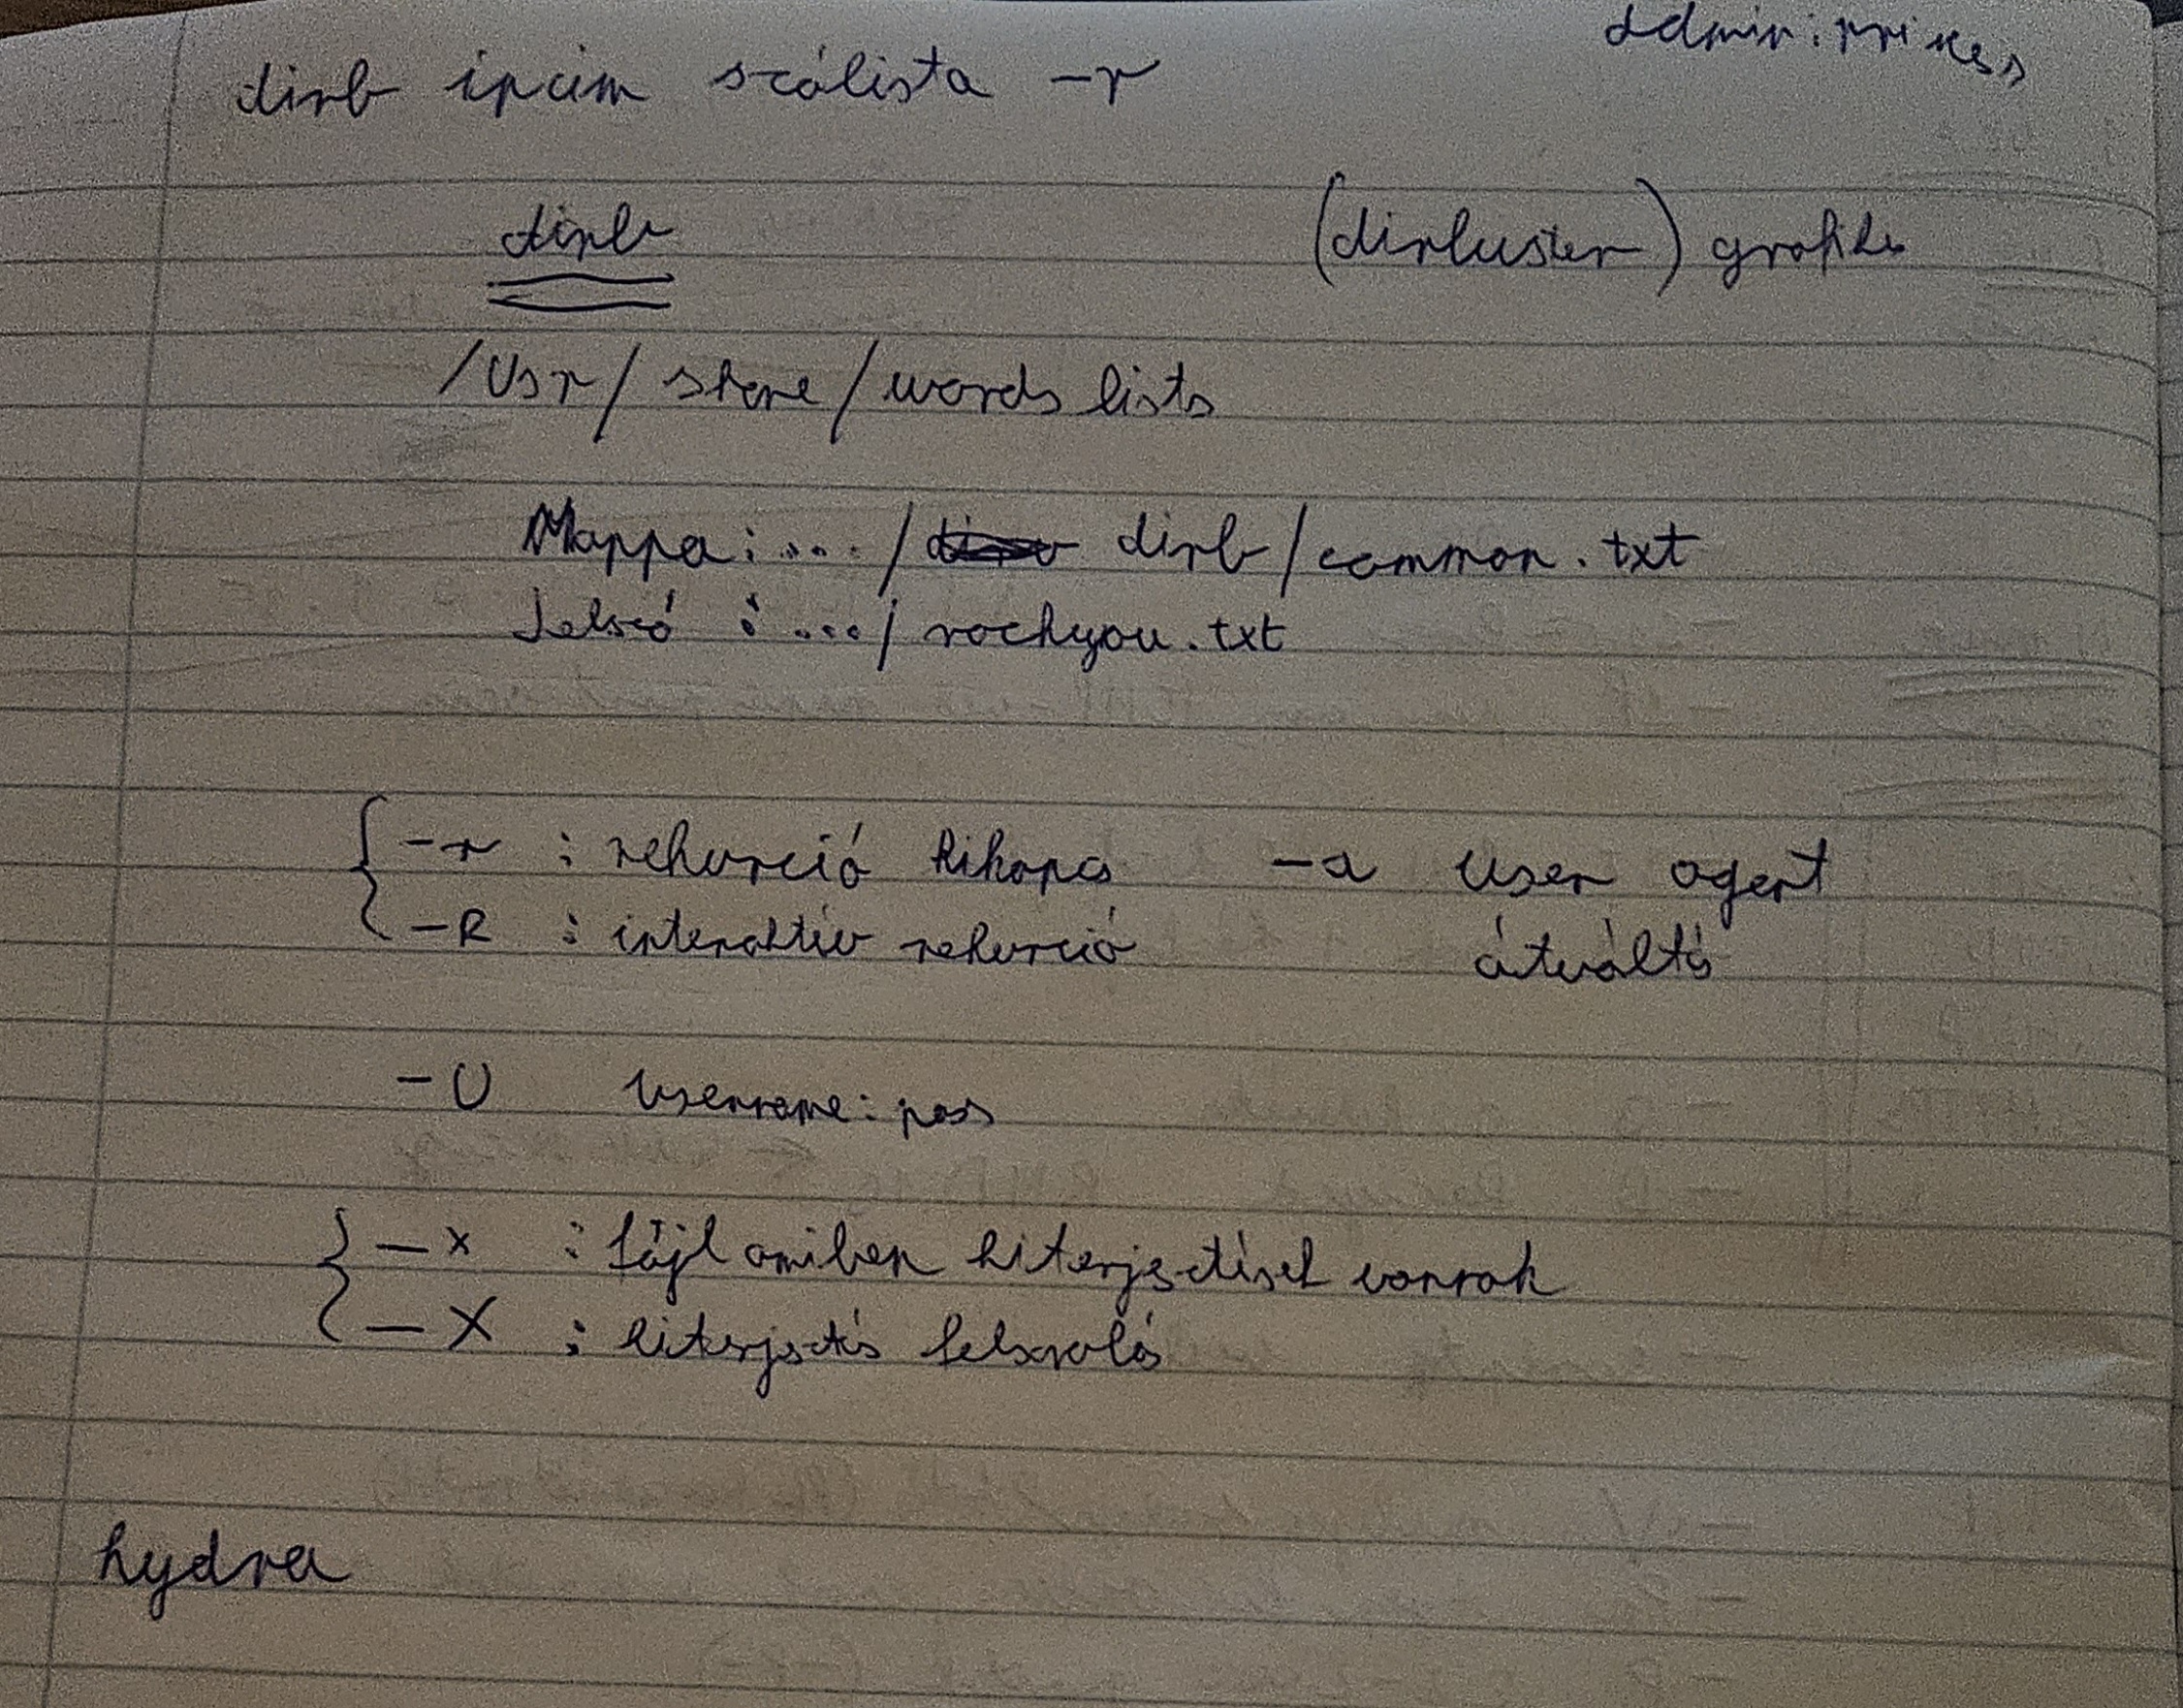 admin: princess
dirb ipcim szólista -r
dirb (dirbuster) grafikus
/Usr/ share / words lists
Mappa: ... / dirb / common.txt
Jelszó : ... / rockyou.txt
-r : rekurció kikapcs -a User agent
-R : interaktív rekurció átváltás
-U username: pass
-x : fájl amiben kiterjesztések vannak
-X : kiterjesztés felsorolás
hydra